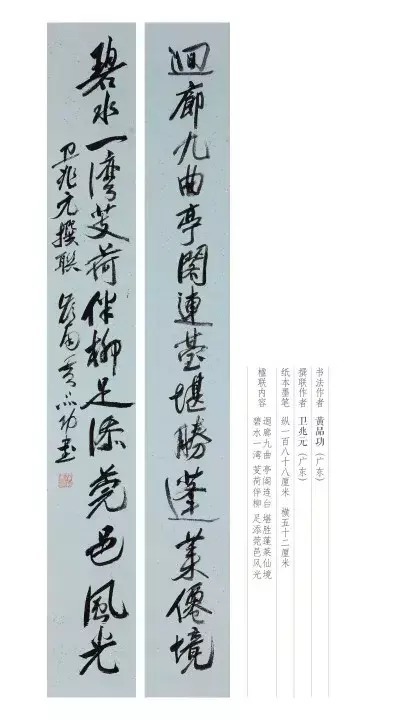 迴廊九曲亭閣連臺堪勝蓬萊僊境
碧水一湾芰荷伴柳足添莞邑風光
卫兆元撰联 岭南黄品功书
书法作者 黄品功（广东）
撰联作者 卫兆元（广东）
纸本墨笔 纵一百八十八厘米 横五十二厘米
楹联内容 迴廊九曲 亭阁连台 堪胜蓬莱仙境
碧水一湾 芰荷伴柳 足添莞邑风光